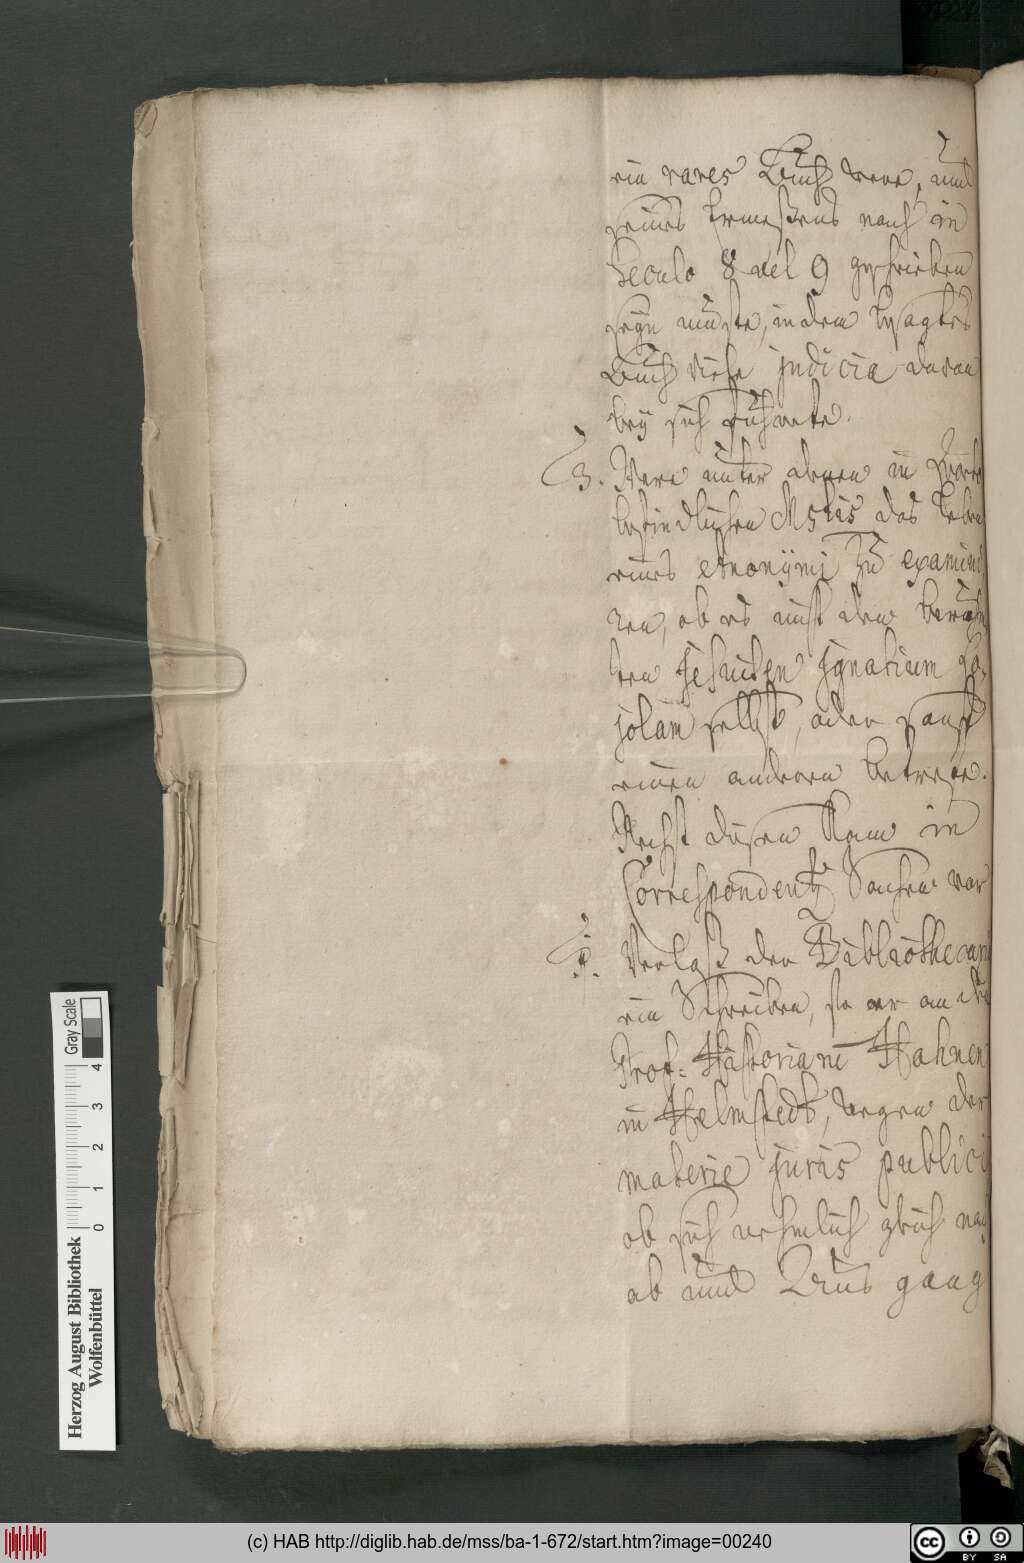 ein rares Buch were, und
seines Ermeßens nach in
Seculo 8 vel 9 geschrieben
seyn müste, in dem besagtes
Buch viele judicia davon
bey sich führete.
3. Were unter denen in
befindlichen Mstis das Leben
eines Anonymi zu examini
ren, ob es nicht den berühm
ten Jesuiten Ignatium Lo-
jolam selbst, oder sonst
einen anderen betreffe.
Nechst diesen kam in
Correspondentz Sachen vor
Verlaß der Bibliothecari
ein Schreiben, so er an die
Prof. Historiarū Hahnen
in Helmstedt, wegen der
materie juris publici
ob sich nehmlich gleich nach
ab und
Gray Scale
Herzog August Bibliothek
Wolfenbüttel
0 1 2 3 4
(c) HAB http://diglib.hab.de/mss/ba-1-672/start.htm?image=00240
cc BY SA